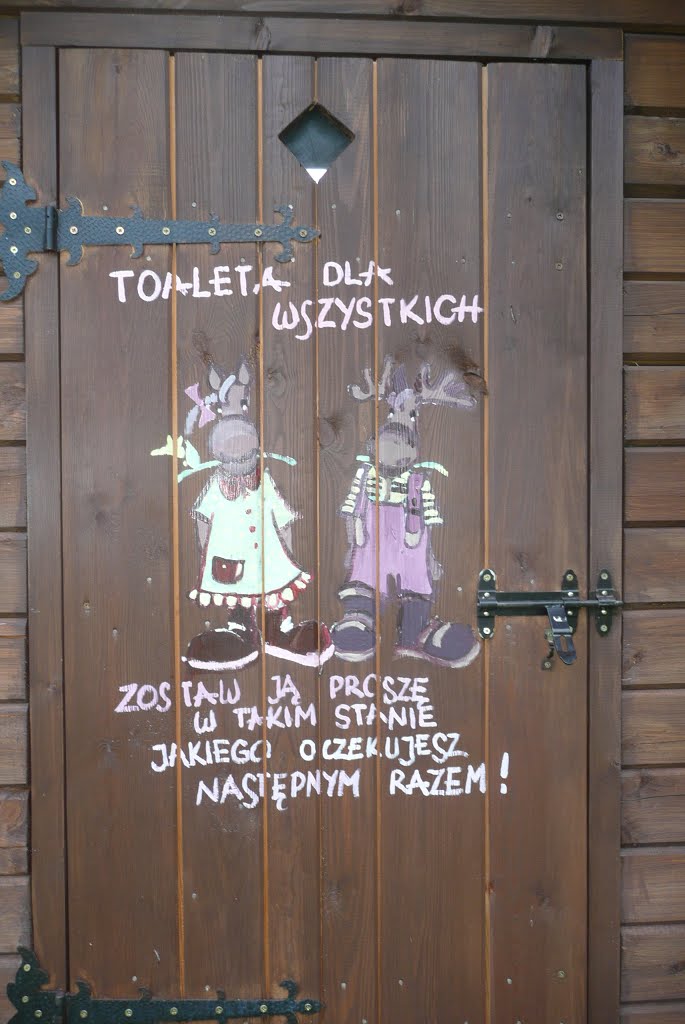 TOALETA DLA
WSZYSTKICH
ZOSTAW JĄ PROSZĘ
W TAKIM STANIE
JAKIEGO OCZEKUJESZ
NASTĘPNYM RAZEM!